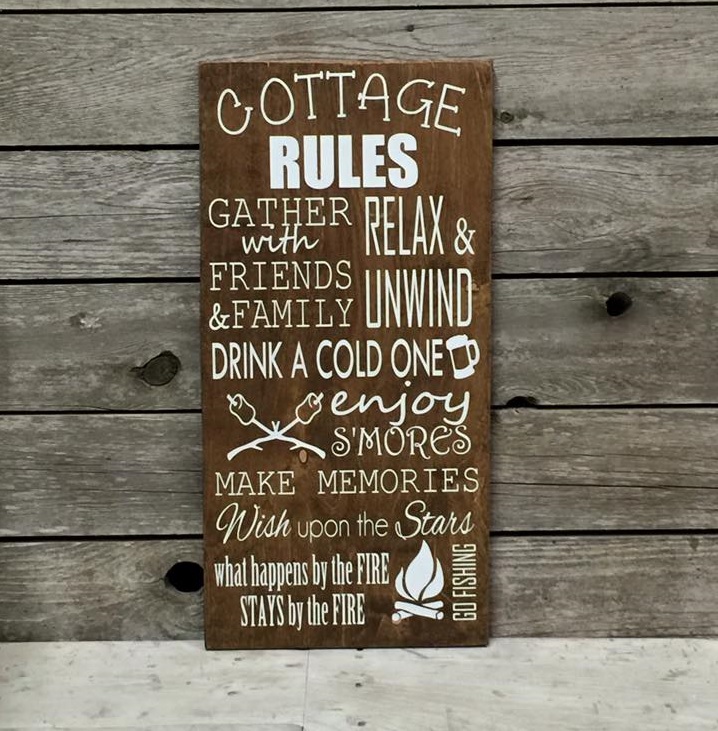 COTTAGE
RULES
GATHER
with
FRIENDS
&FAMILY
RELAX &
UNWIND
DRINK A COLD ONE
enjoy
S'MORES
MAKE MEMORIES
Wish upon the Stars
what happens by the FIRE
STAYS by the FIRE
GO FISHING